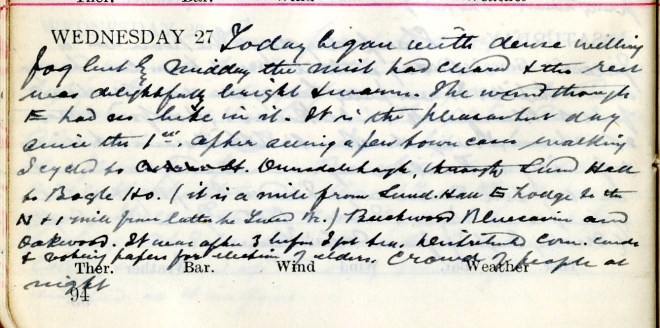 Ther. Bar. Wind Weather
WEDNESDAY 27 Today began with dense wetting
fog but by midday the mist had cleared & the rest
was delightfully bright & warm. The wind though
E had no bite in it. It is the pleasantest day
since the 1st. After seeing a few town cases walking
I cycled to St. through Lund Hall
to Bogle Ho. (it is a mile from Lund Hall E Lodge to the
N & 1 mill from latter to) and
Oakwood. It was after 3 before I got tea. Distributed Com. cards
& voting papers for election of elders. Crowds of people at
Ther. Bar. Wind Weather
night
94